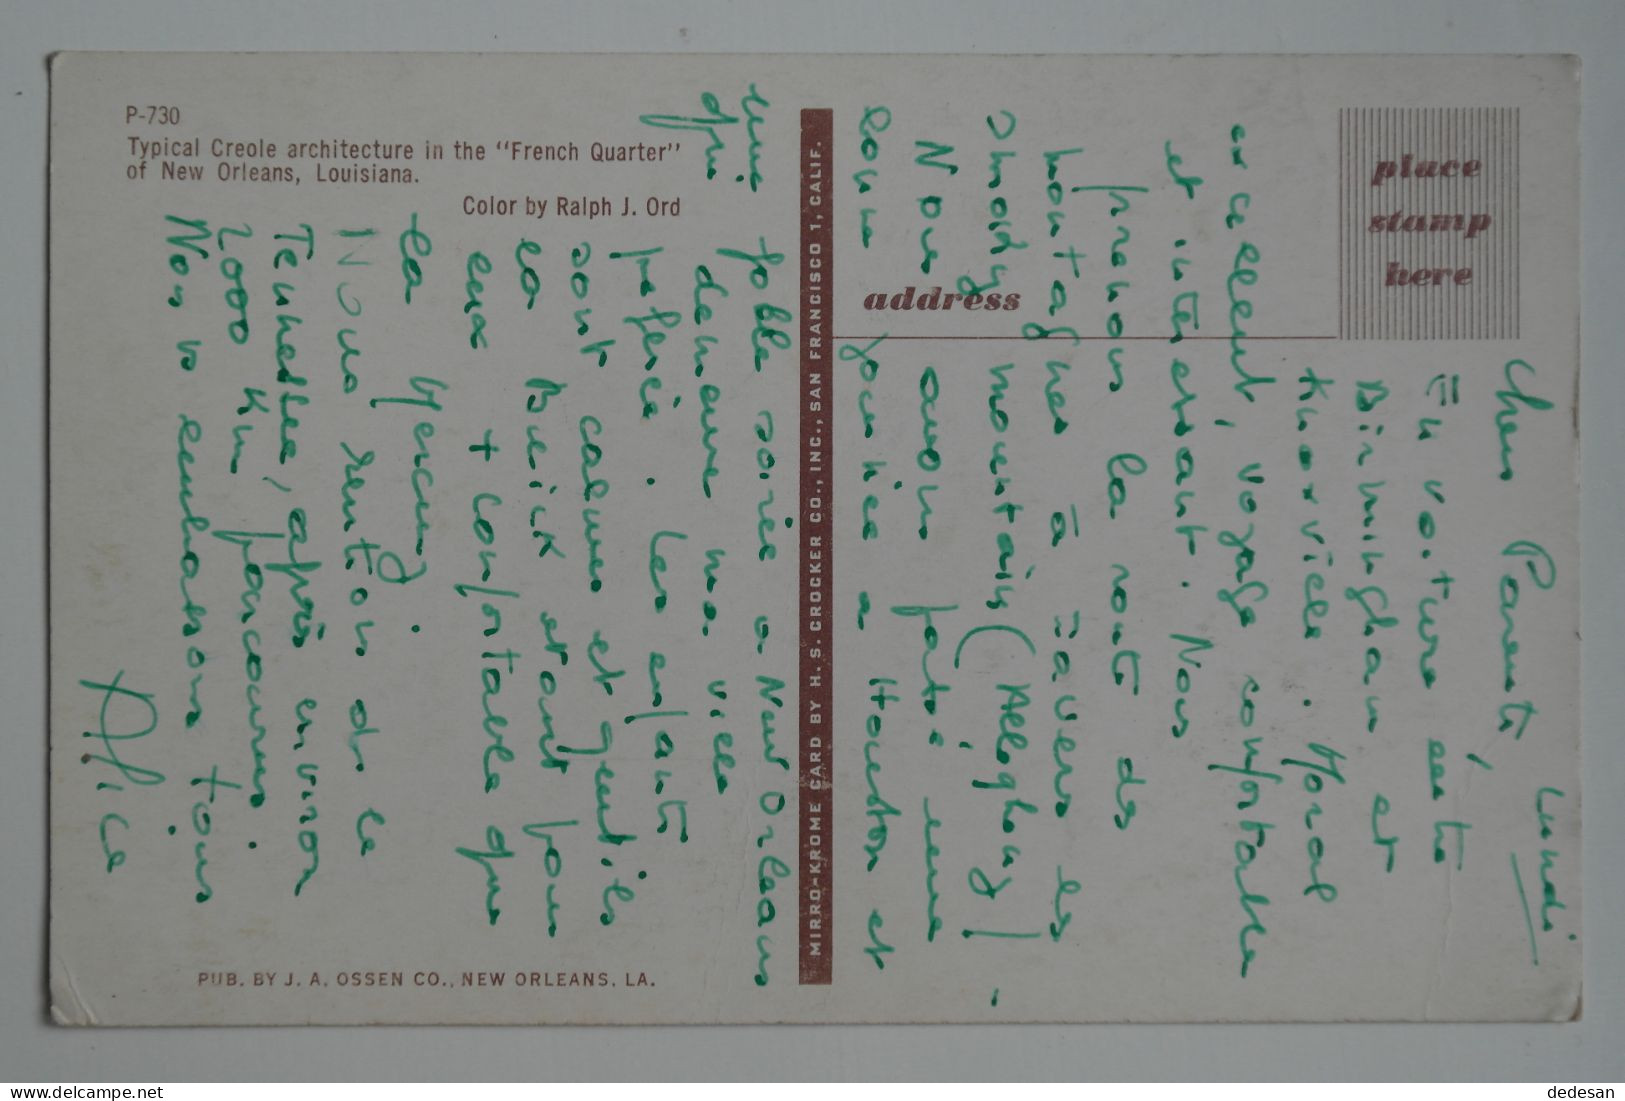 P-730
Typical Creole architecture in the "French Quarter"
of New Orleans, Louisiana.
Color by Ralph J. Ord
MIRRO-KROME CARD BY H. S. CROCKER CO., INC., SAN FRANCISCO 1, CALIF.
place
stamp
here
address
PUB. BY J. A. OSSEN CO., NEW ORLEANS, LA.
Lundi
Chers Parents,
En voiture entre
Birmingham et
Knoxville. Moral
excellent, voyage confortable
et intéressant. Nous
prenons la route des
montagnes à travers les
Smoky mountains (Alleghany)!
Nous avons passé une
bonne journée a Houston et
une folle soirée a New Orleans
qui demeure ma ville
préférée. Les enfants
sont calmes et gentils
la Buick étant pour
eux + confortable que
la Mercury.
Nous rentrons ds le
Tennessee, après environ
2000 km parcourus.
Ns vs embrassons tous
Alice
dedesan